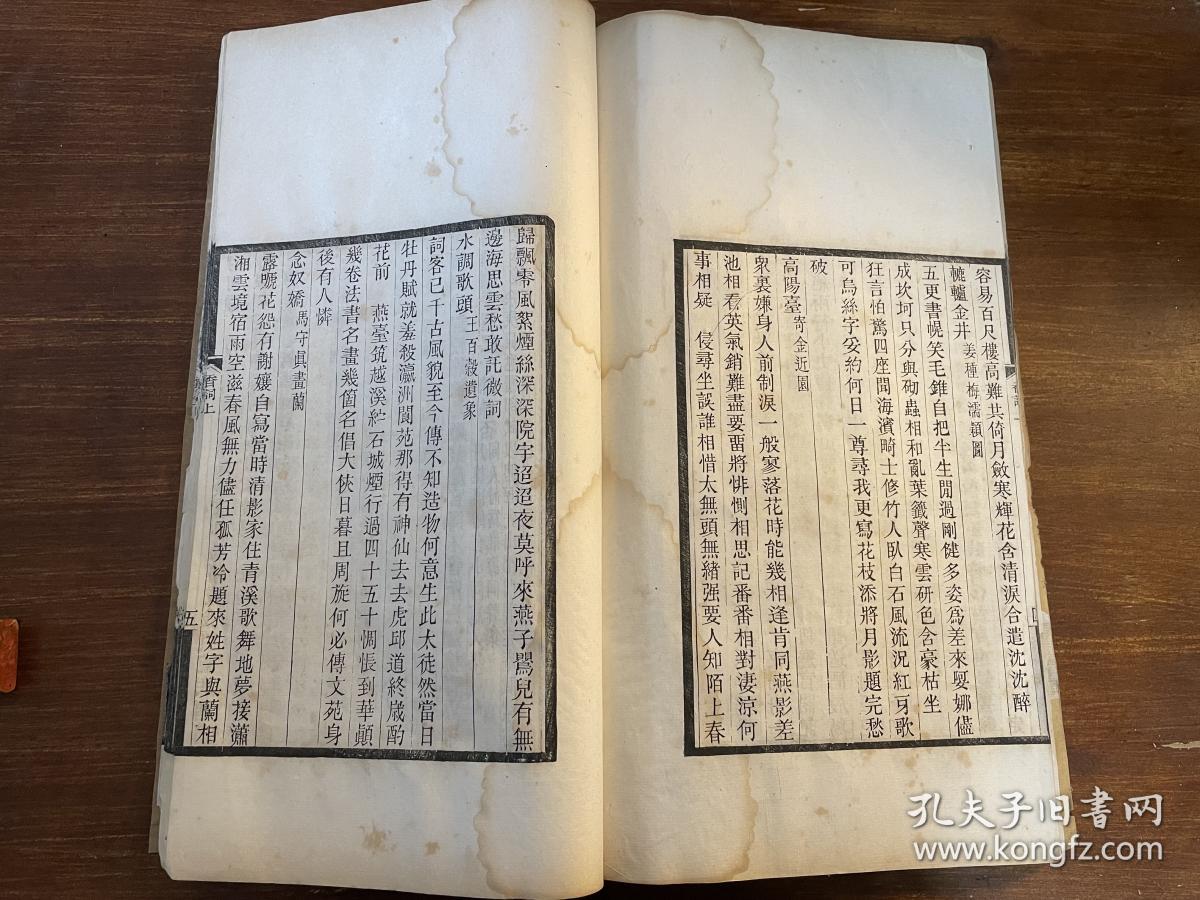 容易百尺樓高難共倚月斂寒輝花含清淚合遣沈沈醉
轆轤金井 姜種梅濡穎圖
五更書幌笑毛錐自把半生閒過剛健多姿爲差來婀娜儘
成坎坷只分與砌蟲相和亂葉籤聲寒雲研色含豪枯坐
狂言怕驚四座聞海濱畸士修竹人臥白石風流況紅牙歌
可烏絲字妥約何日一尊尋我更寫花枝添將月影題完愁
破
高陽臺 寄金近園
衆裏嫌身人前制淚一般寥落花時能幾相逢肯同燕影差
池相看英氣銷難盡要畱將悱惻相思記番番相對淒涼何
事相疑 侵尋坐誤誰相惜太無頭無緒强要人知陌上春
歸飄零風絮煙絲深深院宇迢迢夜莫呼來燕子鸎兒有無
邊海思雲愁敢託微詞
水調歌頭 王百穀遺象
詞客已千古風貌至今傳不知造物何意生此太徒然當日
牡丹賦就羞殺瀛洲閬苑那得有神仙去去虎邱道終歲酌
花前 燕臺筑越溪紵石城煙行過四十五十惆悵到華顛
幾卷法書名畫幾箇名倡大俠日暮且周旋何必傳文苑身
後有人憐
念奴嬌 馬守眞畫蘭
露嚬花怨有謝孃自寫當時清影家住青溪歌舞地夢接瀟
湘雲境宿雨空滋春風無力儘任孤芳冷題來姓字與蘭相
詞上
五
孔夫子旧书网
www.kongfz.com